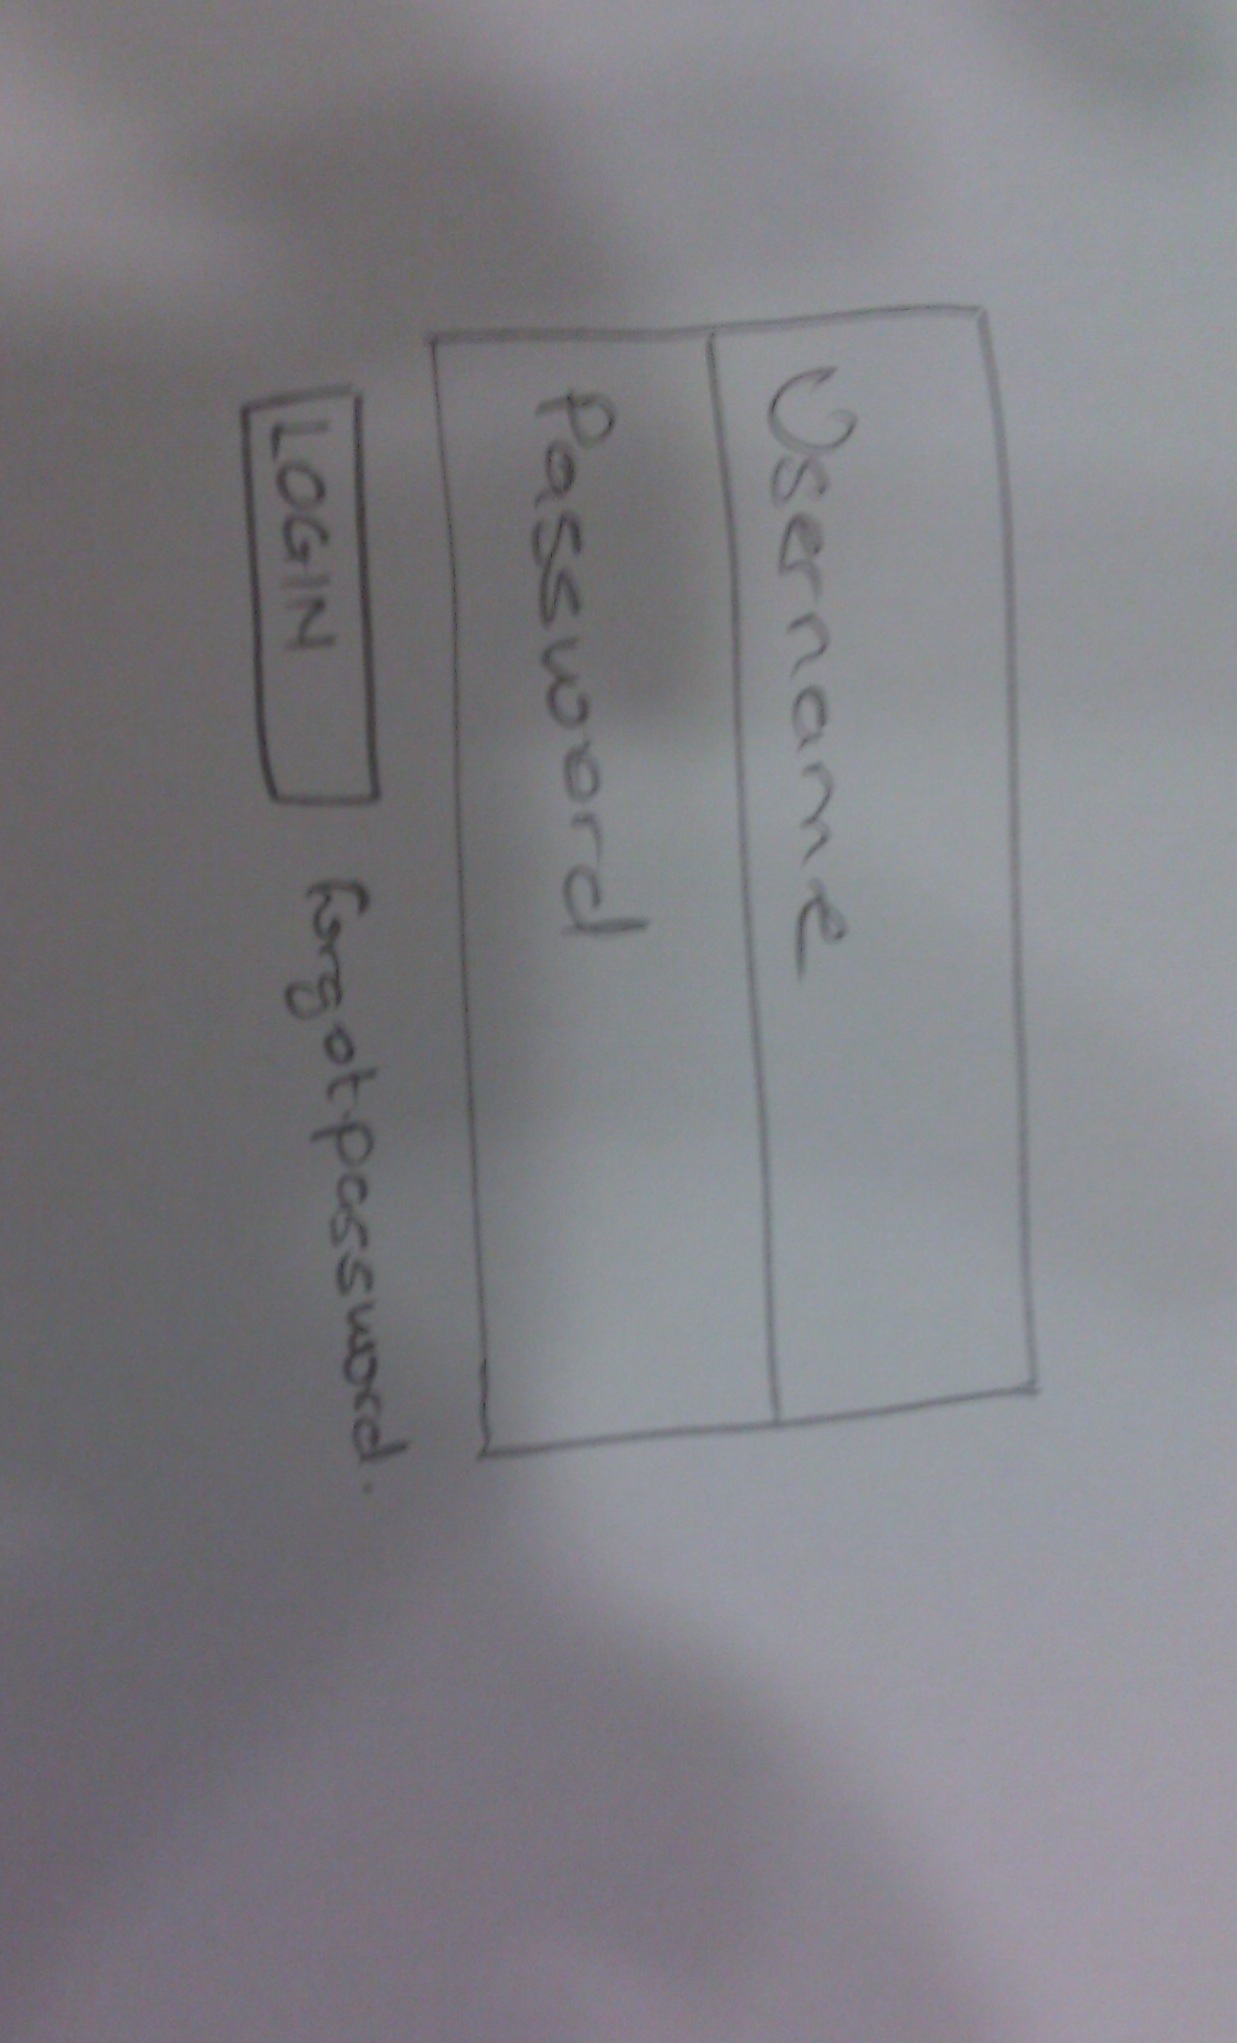 Username
Password
LOGIN forgot password.